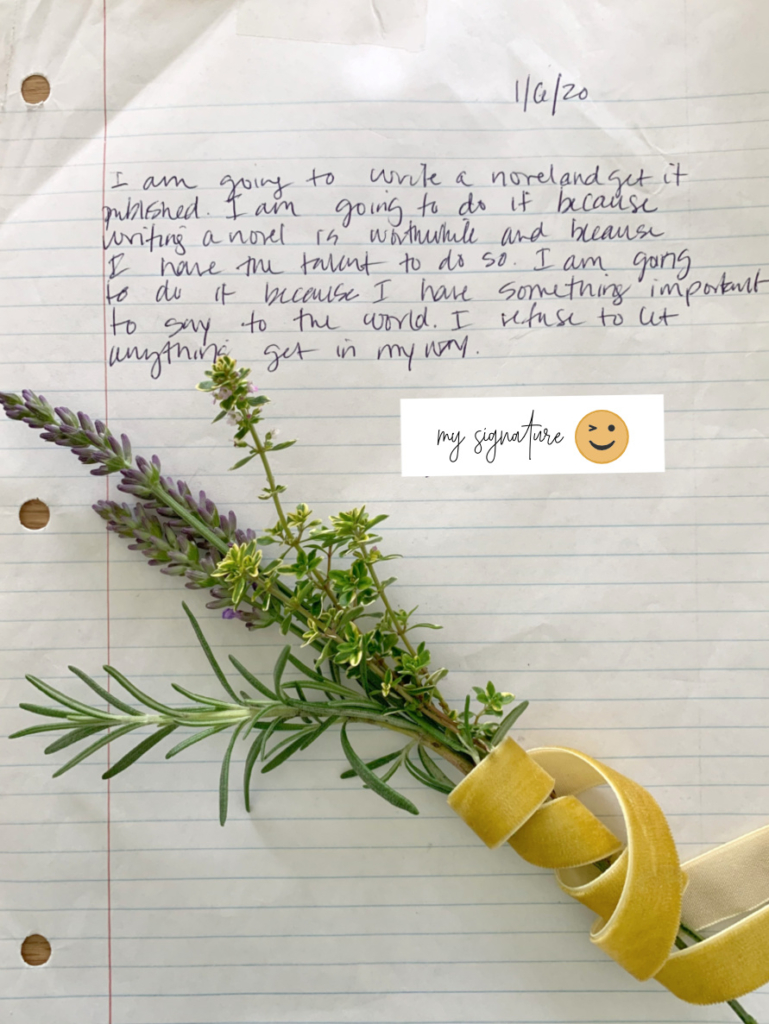 1/6/20
I am going to write a novel and get it
published. I am going to do it because
writing a novel is worthwhile and because
I have the talent to do so. I am going
to do it because I have something important
to say to the world. I refuse to let
anything get in my way.
my signature